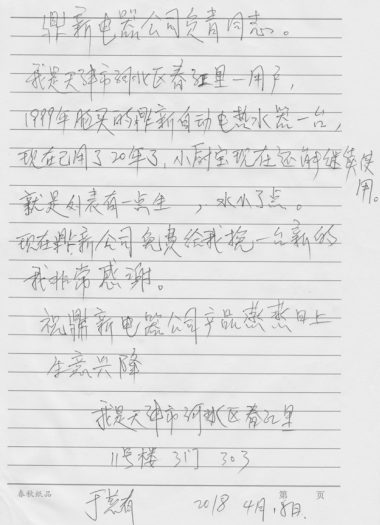 鼎新电器公司负责同志。
我是天津市河北区春江里一用户，
1999年购买的鼎新自动电热水器一台，
现在已用了20年了，小厨宝现在还能继续使
用。
就是外表有一点生 ，水小了点。
现在鼎新公司免费给我换一台新的
我非常感谢。
祝鼎新电器公司产品蒸蒸日上
生意兴隆
我是天津市河北区春江里
11号楼 3门 303
春秋纸品 第 页
2018 4月18日.